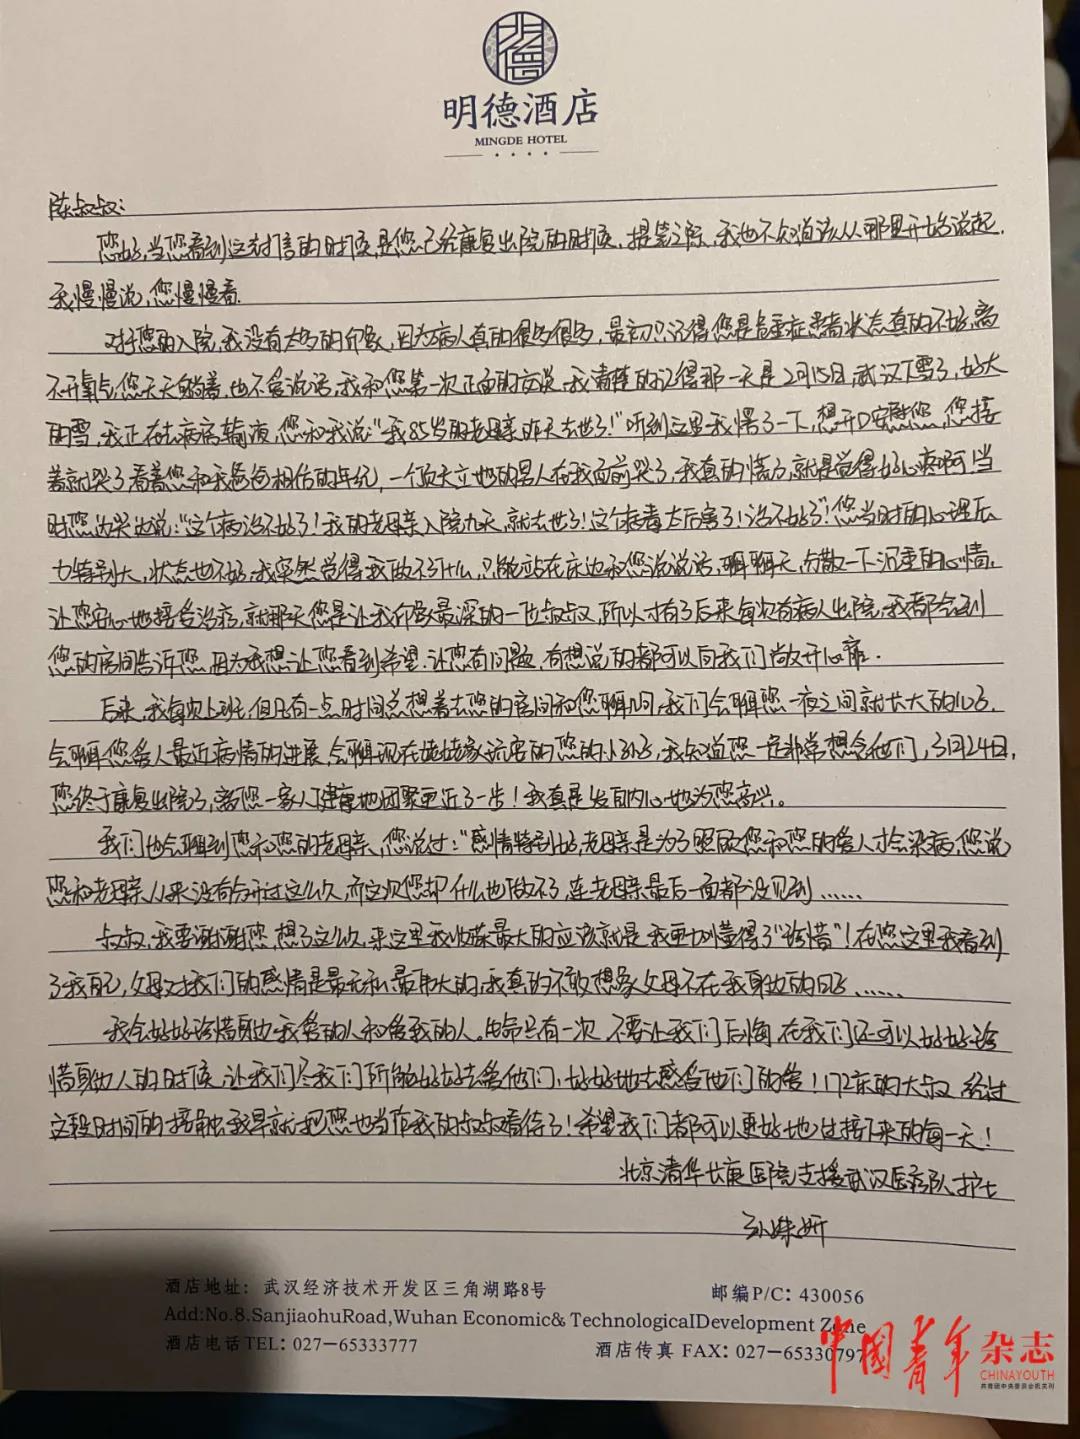 明德酒店
MINGDE HOTEL
陈叔叔:
您好,当您看到这封信的时候,是您已经康复出院的时候,提笔之际,我也不知道该从哪里开始说起,
我慢慢说,您慢慢看.
对于您的入院,我没有太多的印象,因为病人真的很多很多,最初只记得您是危重症患者状态真的不好,离
不开氧气,您天天躺着,也不爱说话,我和您第一次正面的交谈,我清楚的记得那一天是2月15日,武汉下雪了,好大
的雪,我正在去病房输液,您和我说"我85岁的老母亲昨天去世了!"听到这里我愣了一下,想开口安慰您,您接
着就哭了看着您和我爸爸相仿的年纪,一个顶天立地的男人在我面前哭了,我真的慌了,就是觉得好心疼啊,当
时您边哭边说:"这个病治不好了!我的老母亲入院九天,就去世了!这个病毒太厉害了!治不好了"您当时的心理压
力特别大,状态也不好,我突然觉得我做不了什么,只能站在床边和您说说话,聊聊天,分散一下沉重的心情,
让您安心地接受治疗,就那天您是让我印象最深的一位叔叔,所以才有了后来每次有病人出院,我都会到
您的房间告诉您,因为我想让您看到希望,让您有问题,有想说的都可以向我们敞开心扉.
后来,我每次上班,但凡有一点时间总想着去您的房间和您聊几句,我们会聊您一夜之间就长大的儿子,
会聊您爱人最近病情的进展,会聊现在姥姥家玩耍的您的小孙子,我知道您一定非常想念他们,3月24日,
您终于康复出院了,离您一家人健康地团聚更近了一步!我真是发自内心地为您高兴。
我们也会聊到您和您的老母亲,您说过:"感情特别好,老母亲是为了照顾您和您的爱人才会染病,您说
您和老母亲从来没有分开过这么久,而这次您却什么也做不了,连老母亲最后一面都没见到……
叔叔,我要谢谢您,想了这么久,来这里我收获最大的应该就是我更加懂得了"珍惜"!在您这里我看到
了我自己,父母对我们的感情是最无私最伟大的,我真的不敢想象父母不在我身边的日子……
我会好好珍惜身边我爱的人和爱我的人。生命只有一次,不要让我们后悔,在我们还可以好好珍
惜身边人的时候,让我们尽我们所能好好去爱他们,好好地去感受他们的爱!172床的大叔,经过
这段时间的接触,我早就把您也当作我的叔叔看待了!希望我们都可以更好地过接下来的每一天!
北京清华长庚医院支援武汉医疗队护士
孙姝妍
酒店地址: 武汉经济技术开发区三角湖路8号 邮编P/C: 430056
Add:No.8.SanjiaohuRoad,Wuhan Economic& TechnologicalDevelopment Zone
酒店电话TEL: 027-65333777 酒店传真 FAX: 027-65330797
中国青年杂志
CHINAYOUTH
共青团中央委员会机关刊